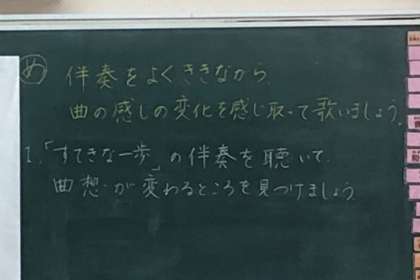 め 伴奏をよくききながら、
曲の感じの変化を感じ取って歌いましょう。
1.「すてきな一歩」の伴奏を聴いて
曲想が変わるところを見つけましょう